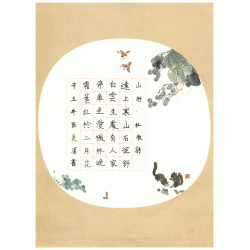 山行·杜牧詩
遠上寒山石徑斜
白雲生處有人家
停車坐愛楓林晚
霜葉紅於二月花